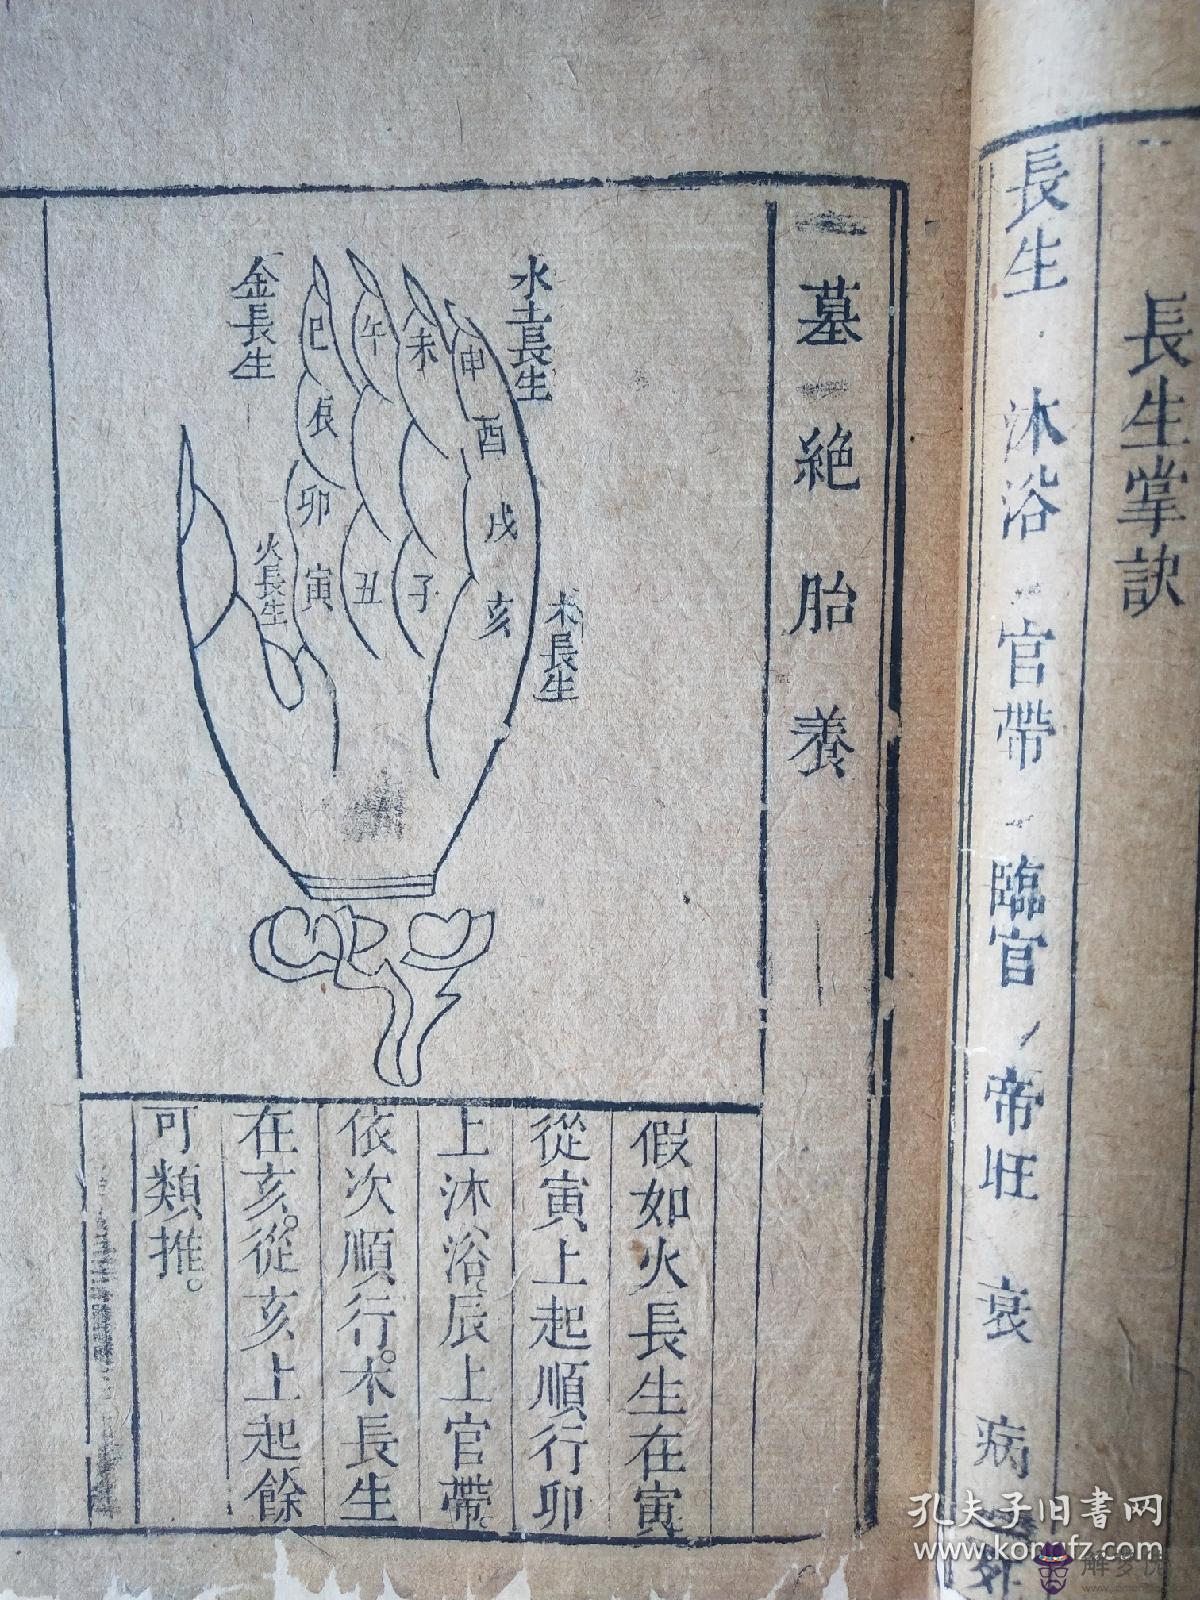 長生掌訣
長生 沐浴 官帶 臨官 帝旺 衰 病 死
墓 絶 胎 養
水土長生
金長生
巳 午 未 申
辰 酉
卯 戌
火長生
寅 丑 子 亥
木長生
假如火長生在寅
從寅上起順行卯
上沐浴。辰上官帶。
依次順行。木長生
在亥。從亥上起餘
可類推。
孔夫子旧書网
www.kongfz.com
解梦佬